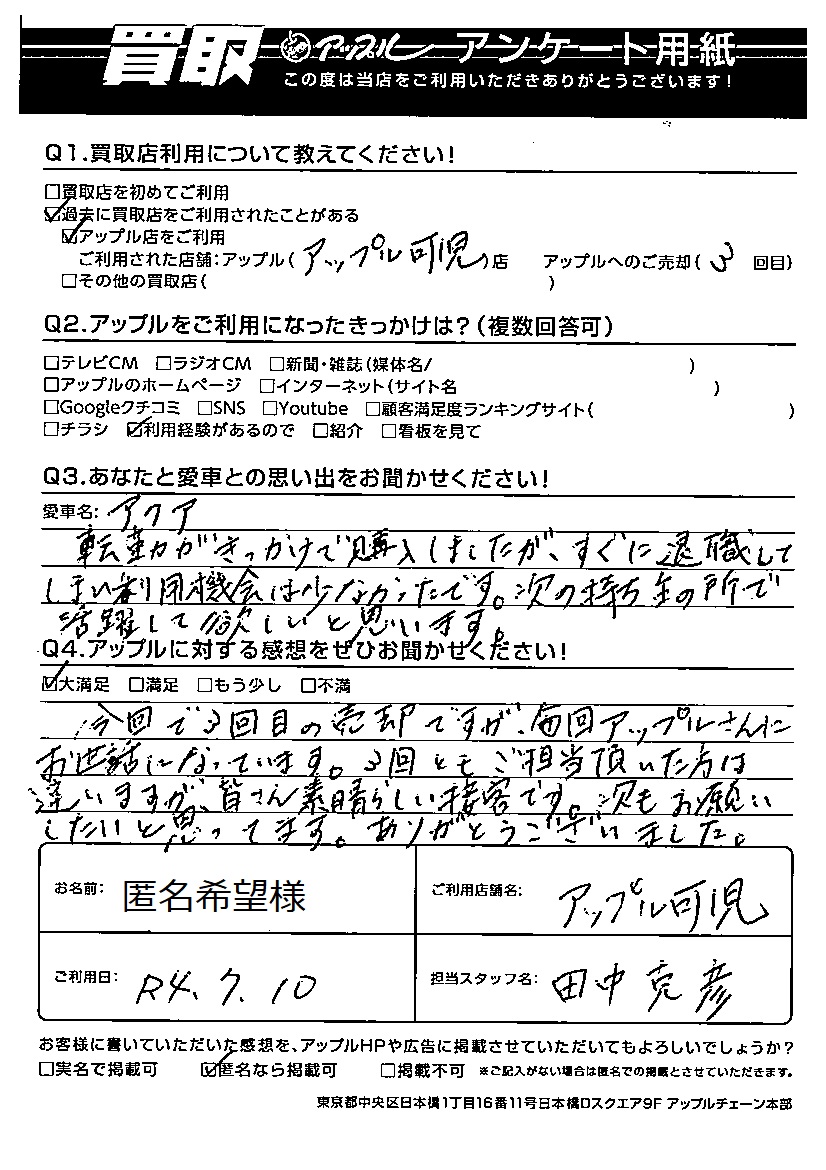 買取 アップル アンケート用紙
この度は当店をご利用いただきありがとうございます!
Q1.買取店利用について教えてください!
□買取店を初めてご利用
☑過去に買取店をご利用されたことがある
☑アップル店をご利用
ご利用された店舗:アップル(アップル可児)店 アップルへのご売却(3回目)
□その他の買取店( )
Q2.アップルをご利用になったきっかけは?(複数回答可)
□テレビCM □ラジオCM □新聞・雑誌(媒体名/ )
□アップルのホームページ □インターネット(サイト名 )
□Googleクチコミ □SNS □Youtube □顧客満足度ランキングサイト( )
□チラシ ☑利用経験があるので □紹介 □看板を見て
Q3.あなたと愛車との思い出をお聞かせください!
愛車名:アクア
転勤がきっかけで購入しましたが、すぐに退職して
しまい利用機会は少なかったです。次の持ち主の所で
活躍して欲しいと思います。
Q4.アップルに対する感想をぜひお聞かせください!
☑大満足 □満足 □もう少し □不満
今回で3回目の売却ですが、毎回アップルさんに
お世話になっています。3回ともご担当頂いた方は
違いますが、皆さん素晴らしい接客です。次もお願い
したいと思ってます。ありがとうございました。
お名前: 匿名希望様 ご利用店舗名: アップル可児
ご利用日: R4.7.10 担当スタッフ名: 田中克彦
お客様に書いていただいた感想を、アップルHPや広告に掲載させていただいてもよろしいでしょうか?
□実名で掲載可 ☑匿名なら掲載可 □掲載不可 ※ご記入がない場合は匿名での掲載とさせていただきます。
東京都中央区日本橋1丁目16番11号日本橋Dスクエア9F アップルチェーン本部